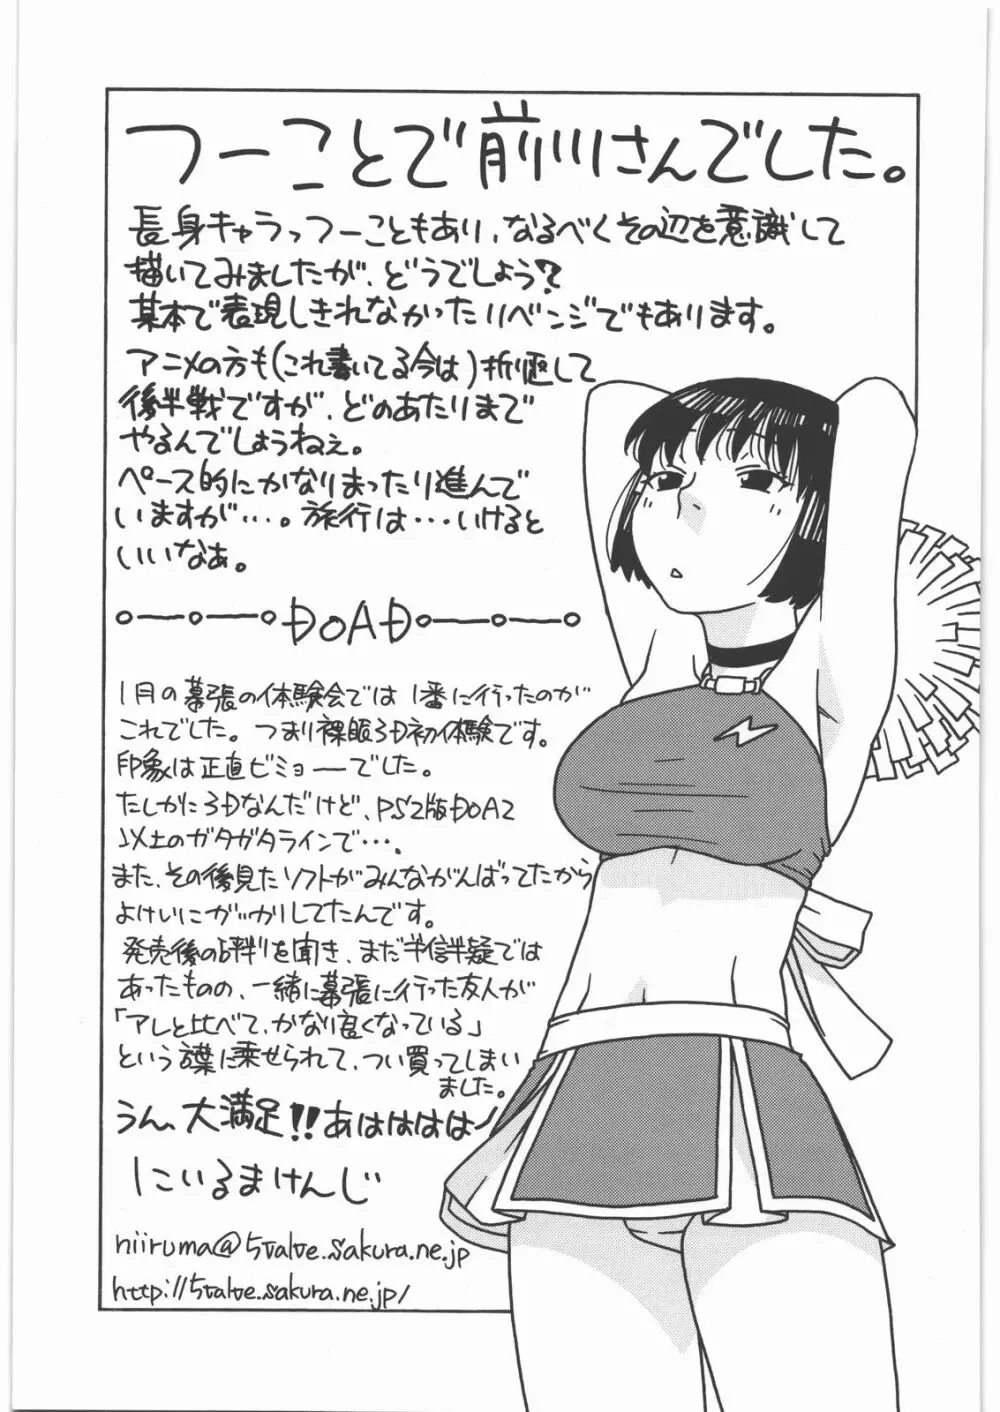 つーことで前川さんでした。
長身キャラっつーこともあり、なるべくその辺を意識して
描いてみましたが、どうでしょう?
某本で表現しきれなかったリベンジでもあります。
アニメの方も(これ書いてる今は)折り返して
後半戦ですが、どのあたりまで
やるんでしょうねぇ。
ペース的にかなりまったり進んで
いますが…。旅行は…いけると
いいなぁ。
DOAD
1月の幕張の体験会では1番に行ったのが
これでした。つまり裸眼3D初体験です。
印象は正直ビミョーでした。
たしかに3Dなんだけど、PS2版DOA2
以上のガタガタラインで…。
また、その後見たソフトがみんながんばってたから
よけいにガッカリしてたんです。
発売後の評判を聞き、まだ半信半疑では
あったものの、一緒に幕張に行った友人が
「アレと比べて、かなり良くなっている」
という言葉に乗せられて、つい買ってしまい
ました。
うん、大満足!!あはははは
にいるまけんじ
niiruma@5valve.sakura.ne.jp
http://5valve.sakura.ne.jp/